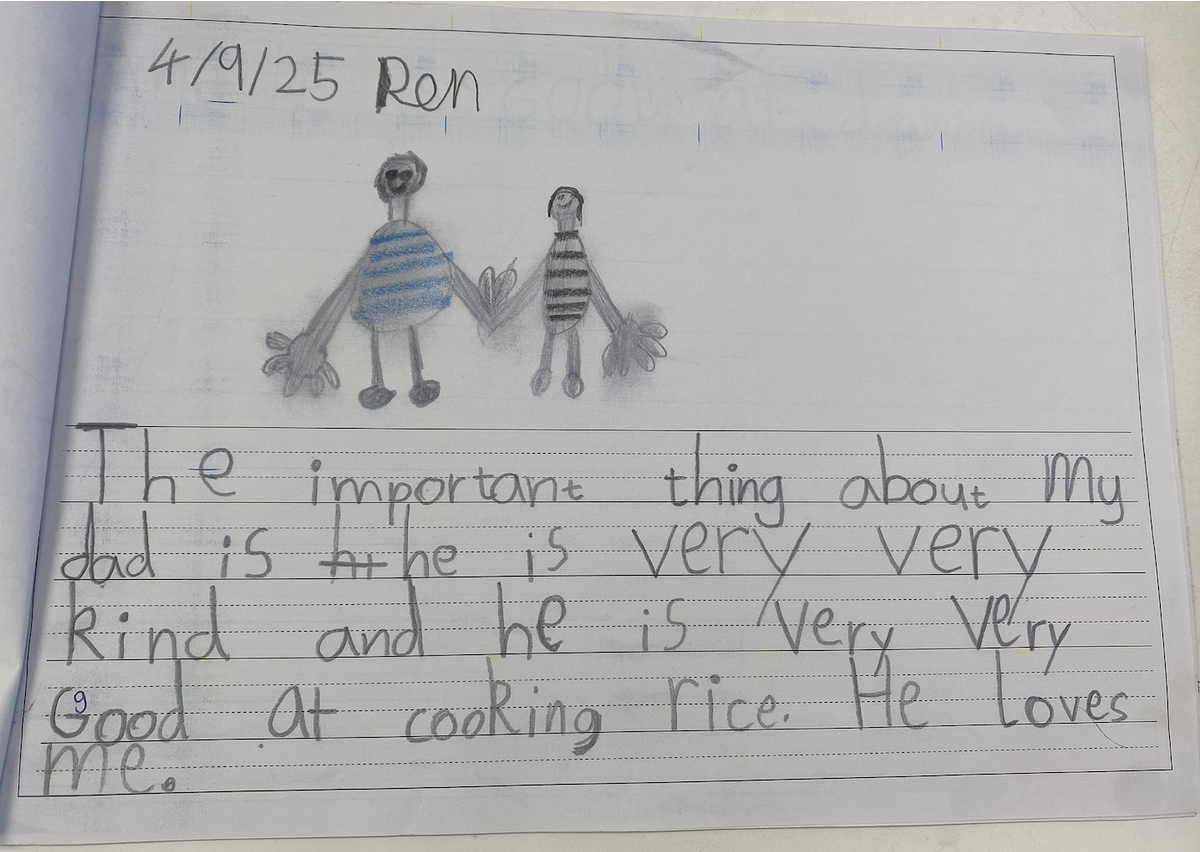 4/9/25 Ren
The important thing about My
dad is he is very very
kind and he is very very
Good at cooking rice. He loves
me.